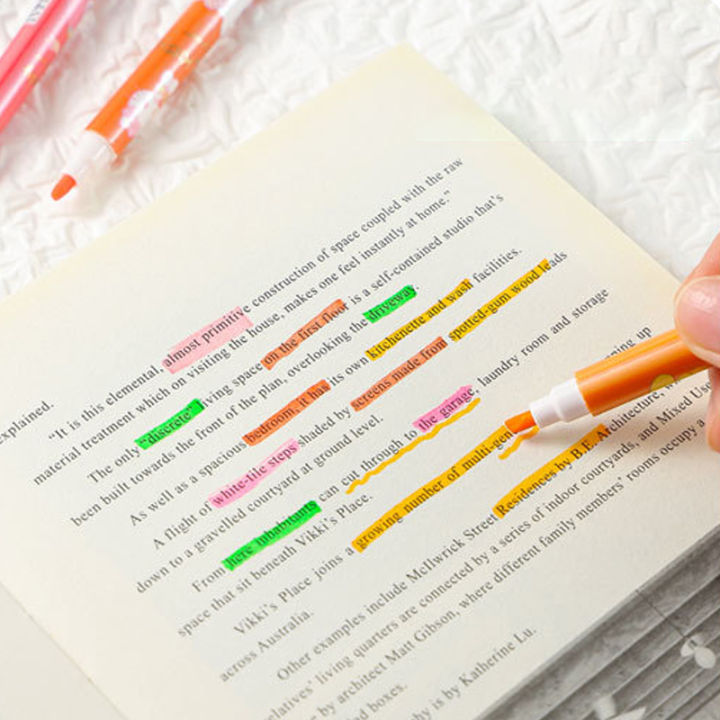 explained.
“It is this elemental, almost primitive construction of space coupled with the raw
material treatment which on visiting the house, makes one feel instantly at home.”
The only “discrete” living space on the first floor is a self-contained studio that’s
been built towards the front of the plan, overlooking the driveway.
As well as a spacious bedroom, it has its own kitchenette and wash facilities.
A flight of white-tile steps shaded by screens made from spotted-gum wood leads
down to a gravelled courtyard at ground level.
From here inhabitants can cut through to the garage, laundry room and storage
space that sit beneath Vikki’s Place.
Vikki’s Place joins a growing number of multi-gen up
across Australia.
Other examples include McIlwrick Street Residences by B.E. Architecture,
elatives’ living quarters are connected by a series of indoor courtyards, and Mixed Use
by architect Matt Gibson, where different family members’ rooms occupy a
boxes.
hy is by Katherine Lu.